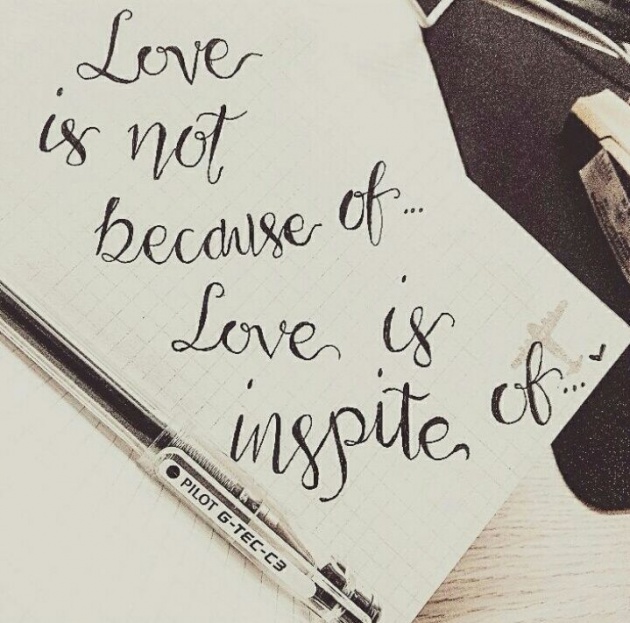 Love
is not
because of...
Love is
inspite of...
PILOT G-TEC-C3